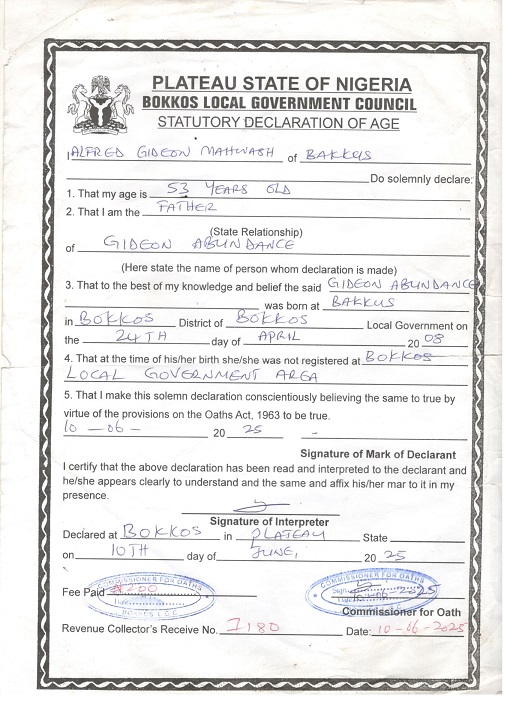 PLATEAU STATE OF NIGERIA
BOKKOS LOCAL GOVERNMENT COUNCIL
STATUTORY DECLARATION OF AGE
I ALFRED GIDEON MAHWASH of BAKKUS
Do solemnly declare:
1. That my age is 53 YEARS OLD
2. That I am the FATHER
(State Relationship)
of GIDEON ABUNDANCE
(Here state the name of person whom declaration is made)
3. That to the best of my knowledge and belief the said GIDEON ABUNDANCE
was born at BAKKUS
in BOKKOS District of BOKKOS Local Government on
the 24TH day of APRIL 2008
4. That at the time of his/her birth she/she was not registered at BOKKOS
LOCAL GOVERNMENT AREA
5. That I make this solemn declaration conscientiously believing the same to true by
virtue of the provisions on the Oaths Act, 1963 to be true.
10 - 06 - 20 25
Signature of Mark of Declarant
I certify that the above declaration has been read and interpreted to the declarant and
he/she appears clearly to understand and the same and affix his/her mar to it in my
presence.
Signature of Interpreter
Declared at BOKKOS in PLATEAU State
on 10TH day of JUNE, 20 25
COMMISSIONER FOR OATHS
COMMISSIONER FOR OATHS
Fee Paid ₦200
Commissioner for Oath
Revenue Collector's Receive No. 7180 Date: 10-06-2025